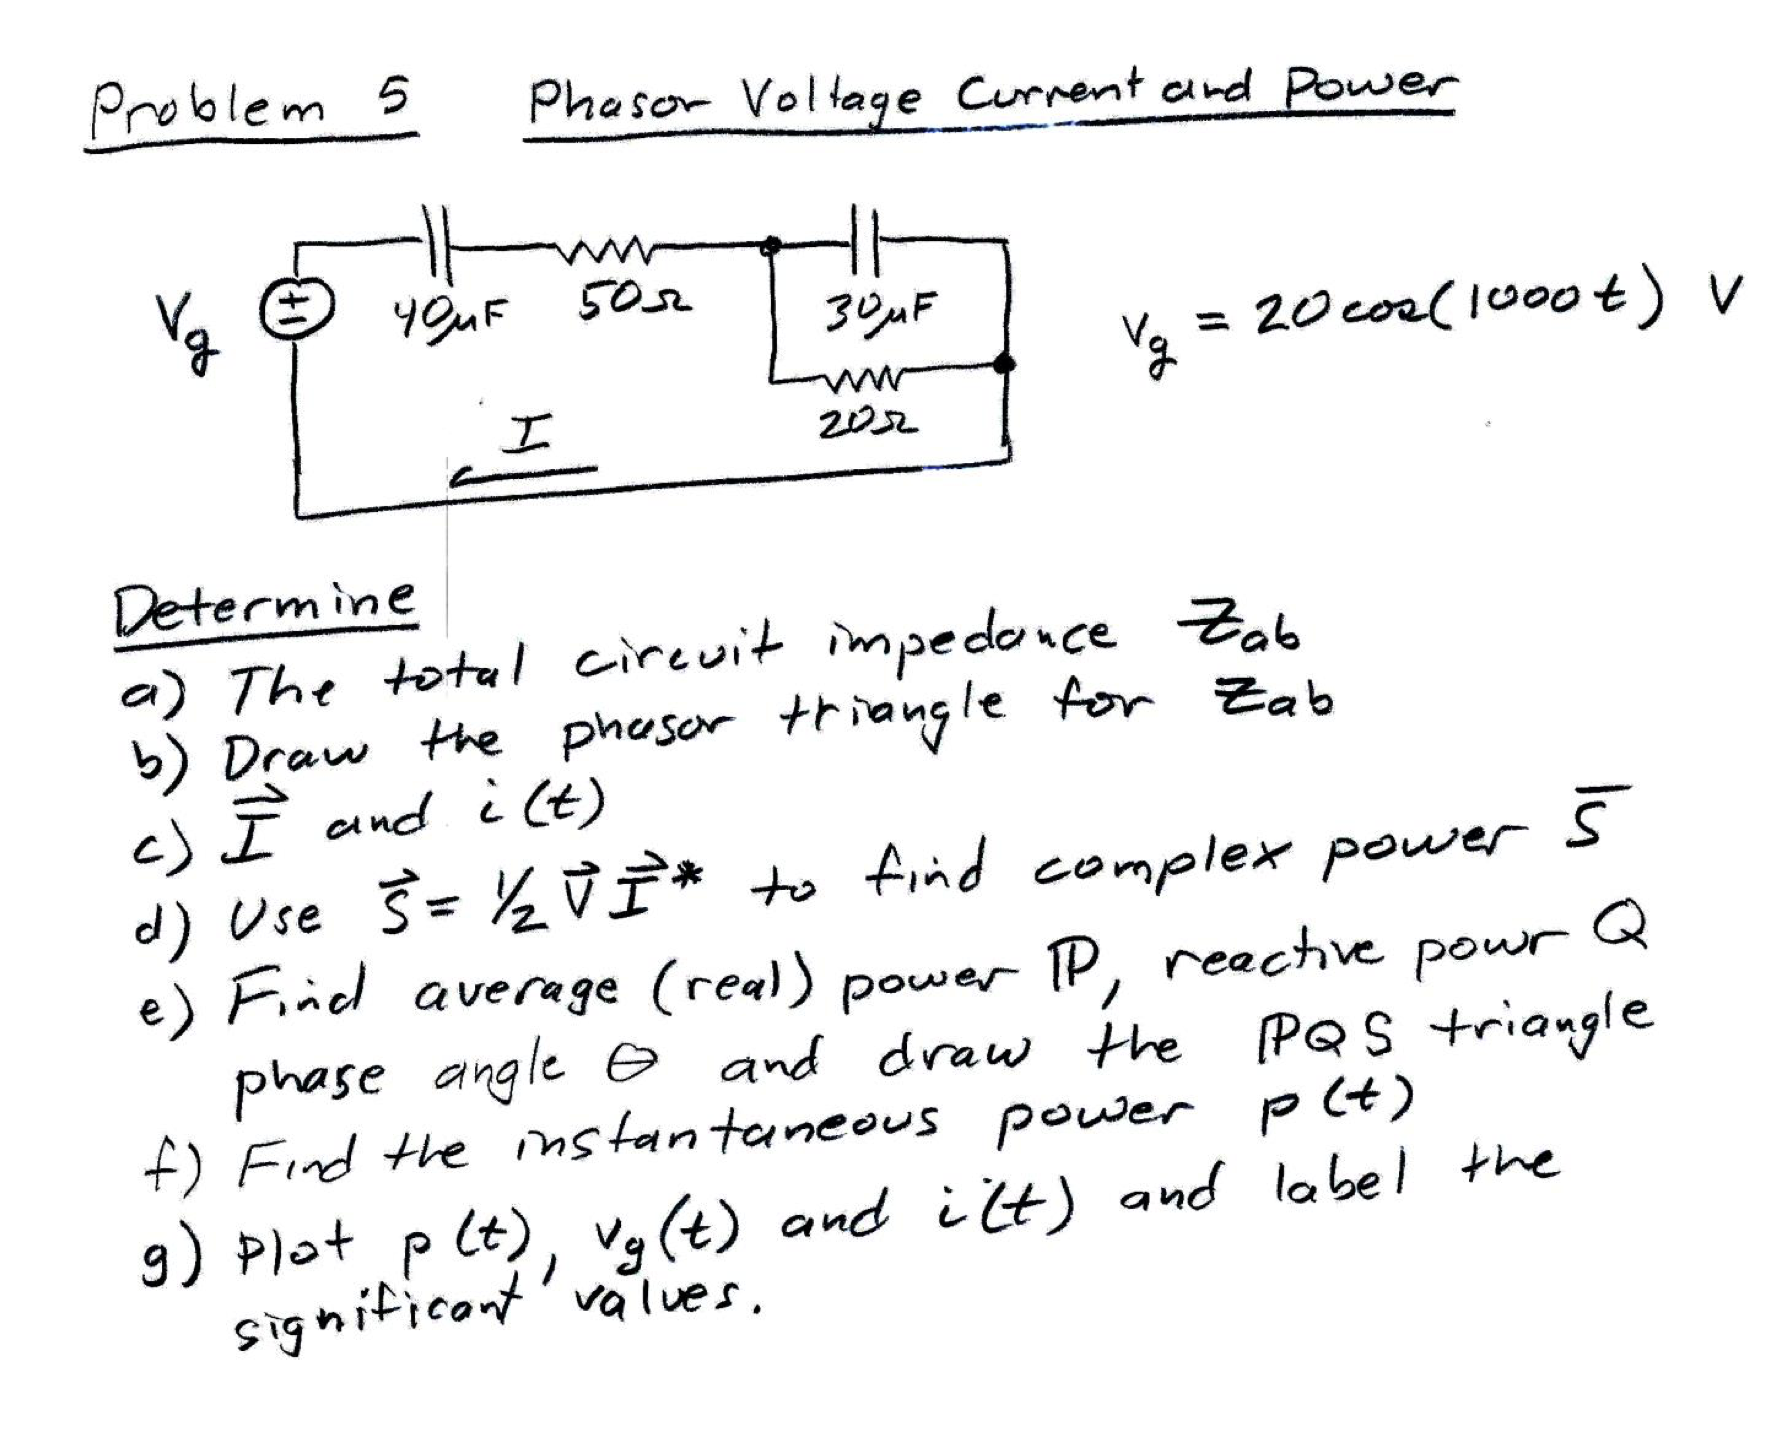 Problem 5 Phasor Voltage Current and Power
Vg ± 40μF 50Ω 30μF vg = 20 cos(1000t) V
20Ω
I
Determine
a) The total circuit impedance Zab
b) Draw the phasor triangle for Zab
c) I⃗ and i(t)
d) Use S⃗ = 1/2 V⃗ I⃗* to find complex power S̅
e) Find average (real) power P, reactive powr Q
phase angle θ and draw the PQS triangle
f) Find the instantaneous power p(t)
g) Plot p(t), vg(t) and i(t) and label the
significant values.